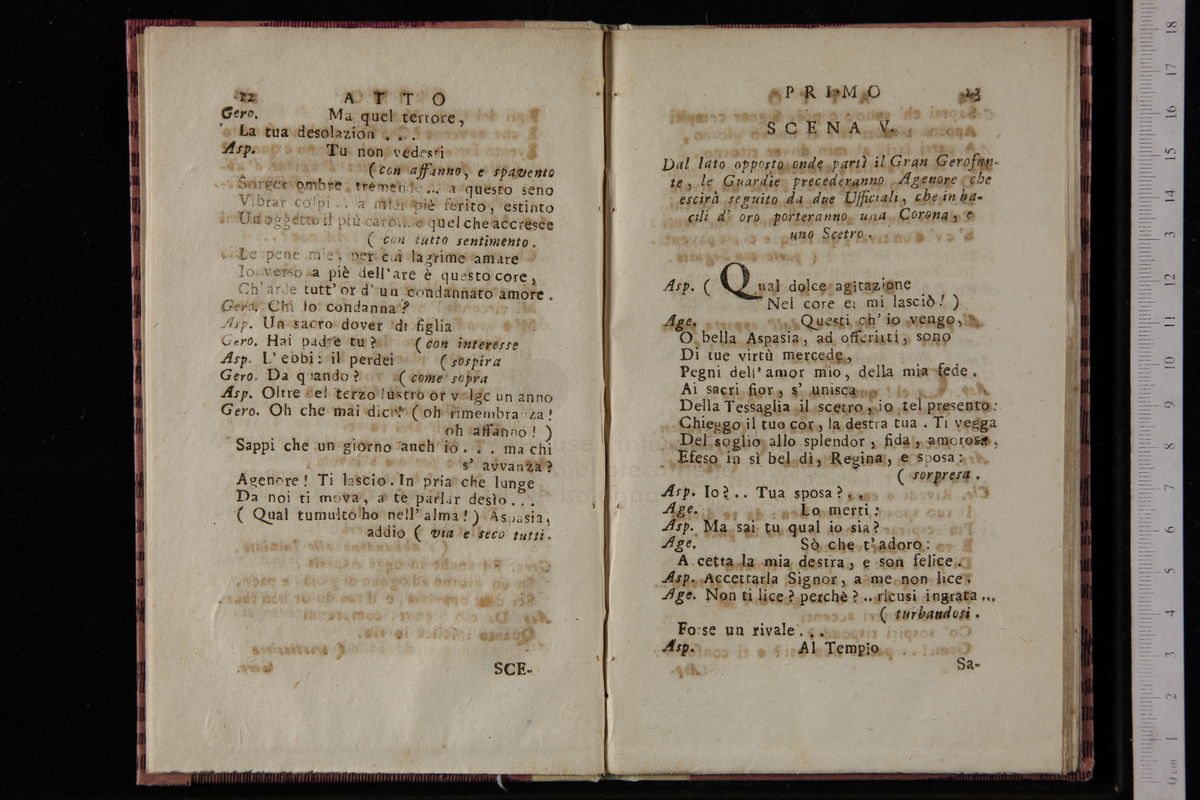 12 ATTO
Gero. Ma quel terrore,
La tua desolazion . . .
Asp. Tu non vedesti
( con affanno, e spavento
Sorger ombre tremende... a questo seno
Vibrar colpi .. a miei piè ferito, estinto
Un oggetto il più caro... e quel che accresce
( con tutto sentimento.
Le pene mie, per cui lagrime amare
Io verso a piè dell'are è questo core,
Ch'arde tutt'or d'un condannato amore.
Gero. Chi lo condanna?
Asp. Un sacro dover di figlia
Gero. Hai padre tu? ( con interesse
Asp. L'ebbi: il perdei ( sospira
Gero. Da quando? ( come sopra
Asp. Oltre del terzo lustro or volge un anno
Gero. Oh che mai dici! ( oh rimembranza!
oh affanno! )
Sappi che un giorno anch'io . . . ma chi
s'avvanza?
Agenore! Ti lascio. In pria che lunge
Da noi ti mova, a te parlar desìo...
( Qual tumulto ho nell'alma! ) Aspasia,
addio ( via e seco tutti.
SCE-
PRIMO 13
SCENA V.
Dal lato opposto onde partì il Gran Gerofan-
te, le Guardie precederanno Agenore che
escirà seguito da due Ufficiali, che in ba-
cili d'oro porteranno una Corona, e
uno Scetro.
Asp. ( Qual dolce agitazione
Nel core ei mi lasciò! )
Age. Questi ch'io vengo,
O bella Aspasia, ad offerirti, sono
Di tue virtù mercede,
Pegni dell'amor mio, della mia fede.
Ai sacri fior, s'unisca
Della Tessaglia il scetro, io tel presento:
Chieggo il tuo cor, la destra tua. Ti vegga
Del soglio allo splendor, fida, amorosa,
Efeso in sì bel dì, Regina, e sposa:
( sorpresa.
Asp. Io?.. Tua sposa?..
Age. Lo merti:
Asp. Ma sai tu qual io sia?
Age. Sò che t'adoro:
Accetta la mia destra, e son felice.
Asp. Accettarla Signor, a me non lice.
Age. Non ti lice? perchè? .. ricusi ingrata...
( turbandosi.
Forse un rivale...
Asp. Al Tempio
Sa-